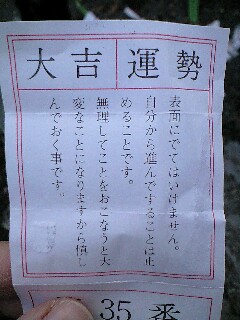 大吉運勢
表面にでてはいけません。
自分から進んですることは止
めることです。
無理してことをおこなうと大
変なことになりますから慎し
んでおく事です。
35番